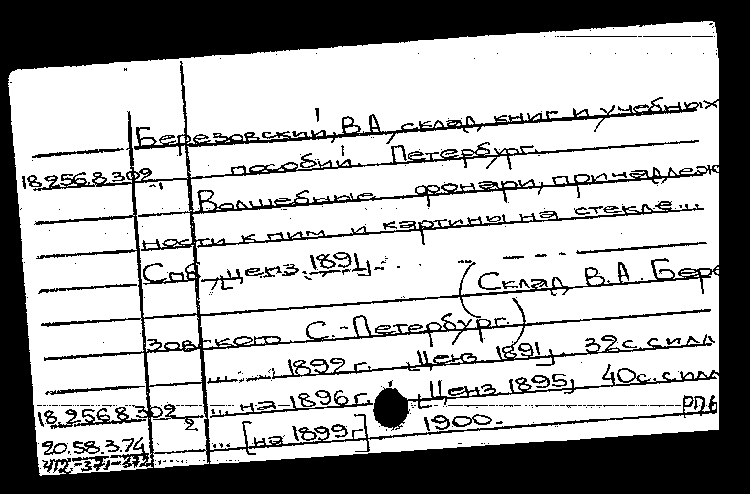 Березовский, В.А, склад книг и учебных
18.256.8.302 пособий. Петербург.
1 Волшебные фонари, принадлеж
ности к ним и картины на стекле...
Спб, [ценз. 1891].
(Склад В.А. Бере
зовского С.-Петербург.)
... 1892 г. [Ценз 1891]. 32с. с илл
18.256.8.302 ... на 1896 г. [Ценз 1895] 40с. с илл
2 РП6
20.58.3.74 ... [на 1899г] 1900.
412-371-372